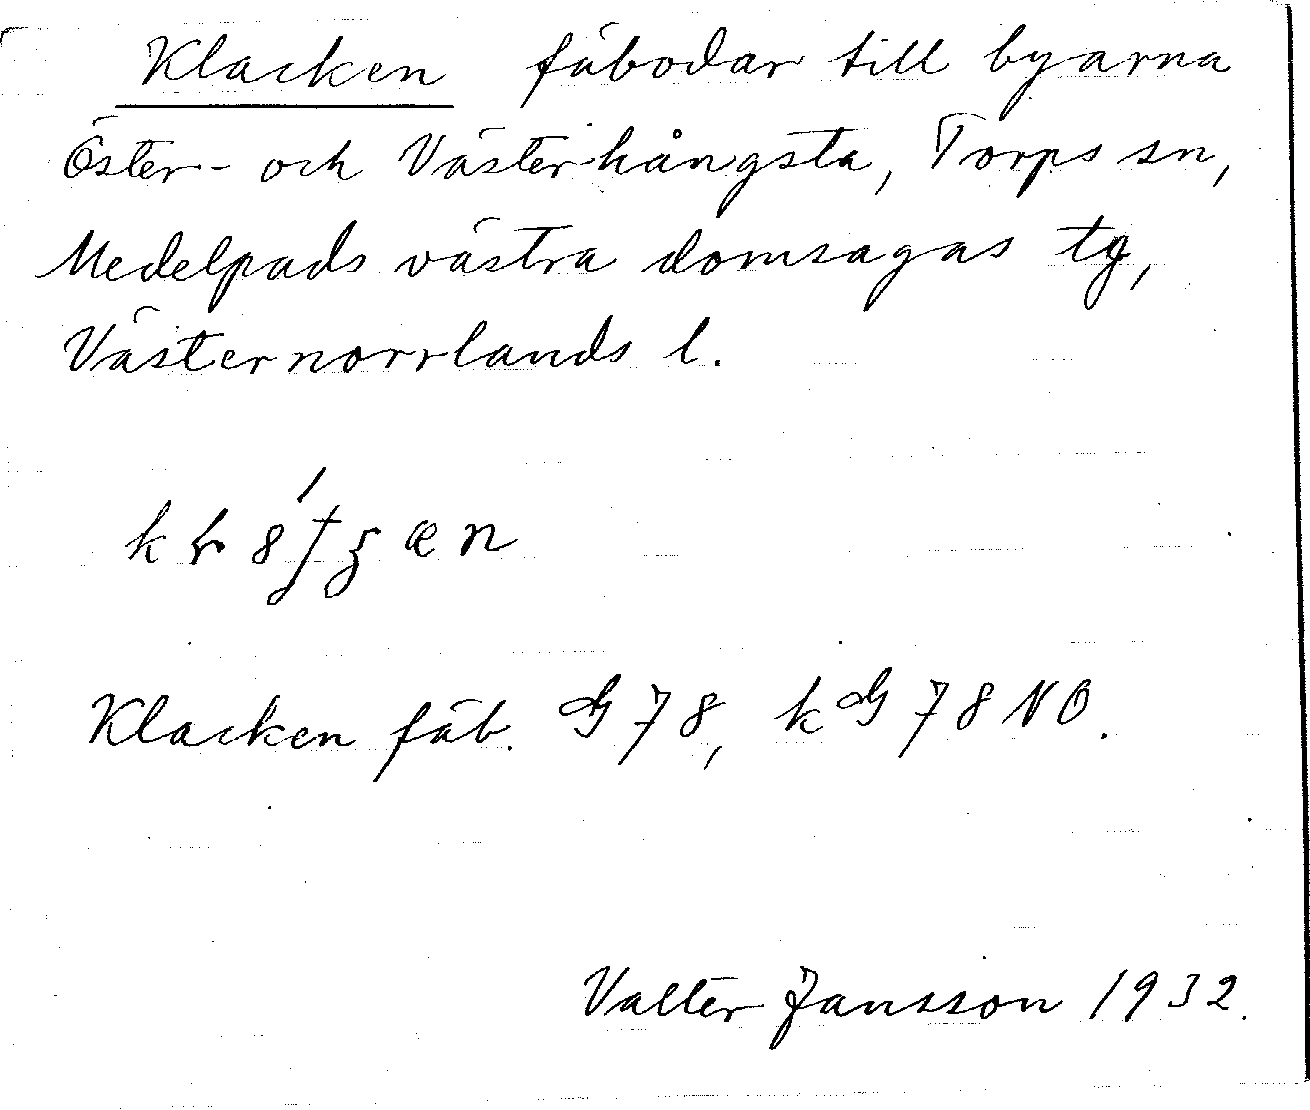 Klacken fäbodar till byarna
Öster- och Västerhångsta, Torps sn,
Medelpads västra domsagas tg,
Västernorrlands l.
Klacken fäb. G 78, k G 78 NO.
Valter Jansson 1932.